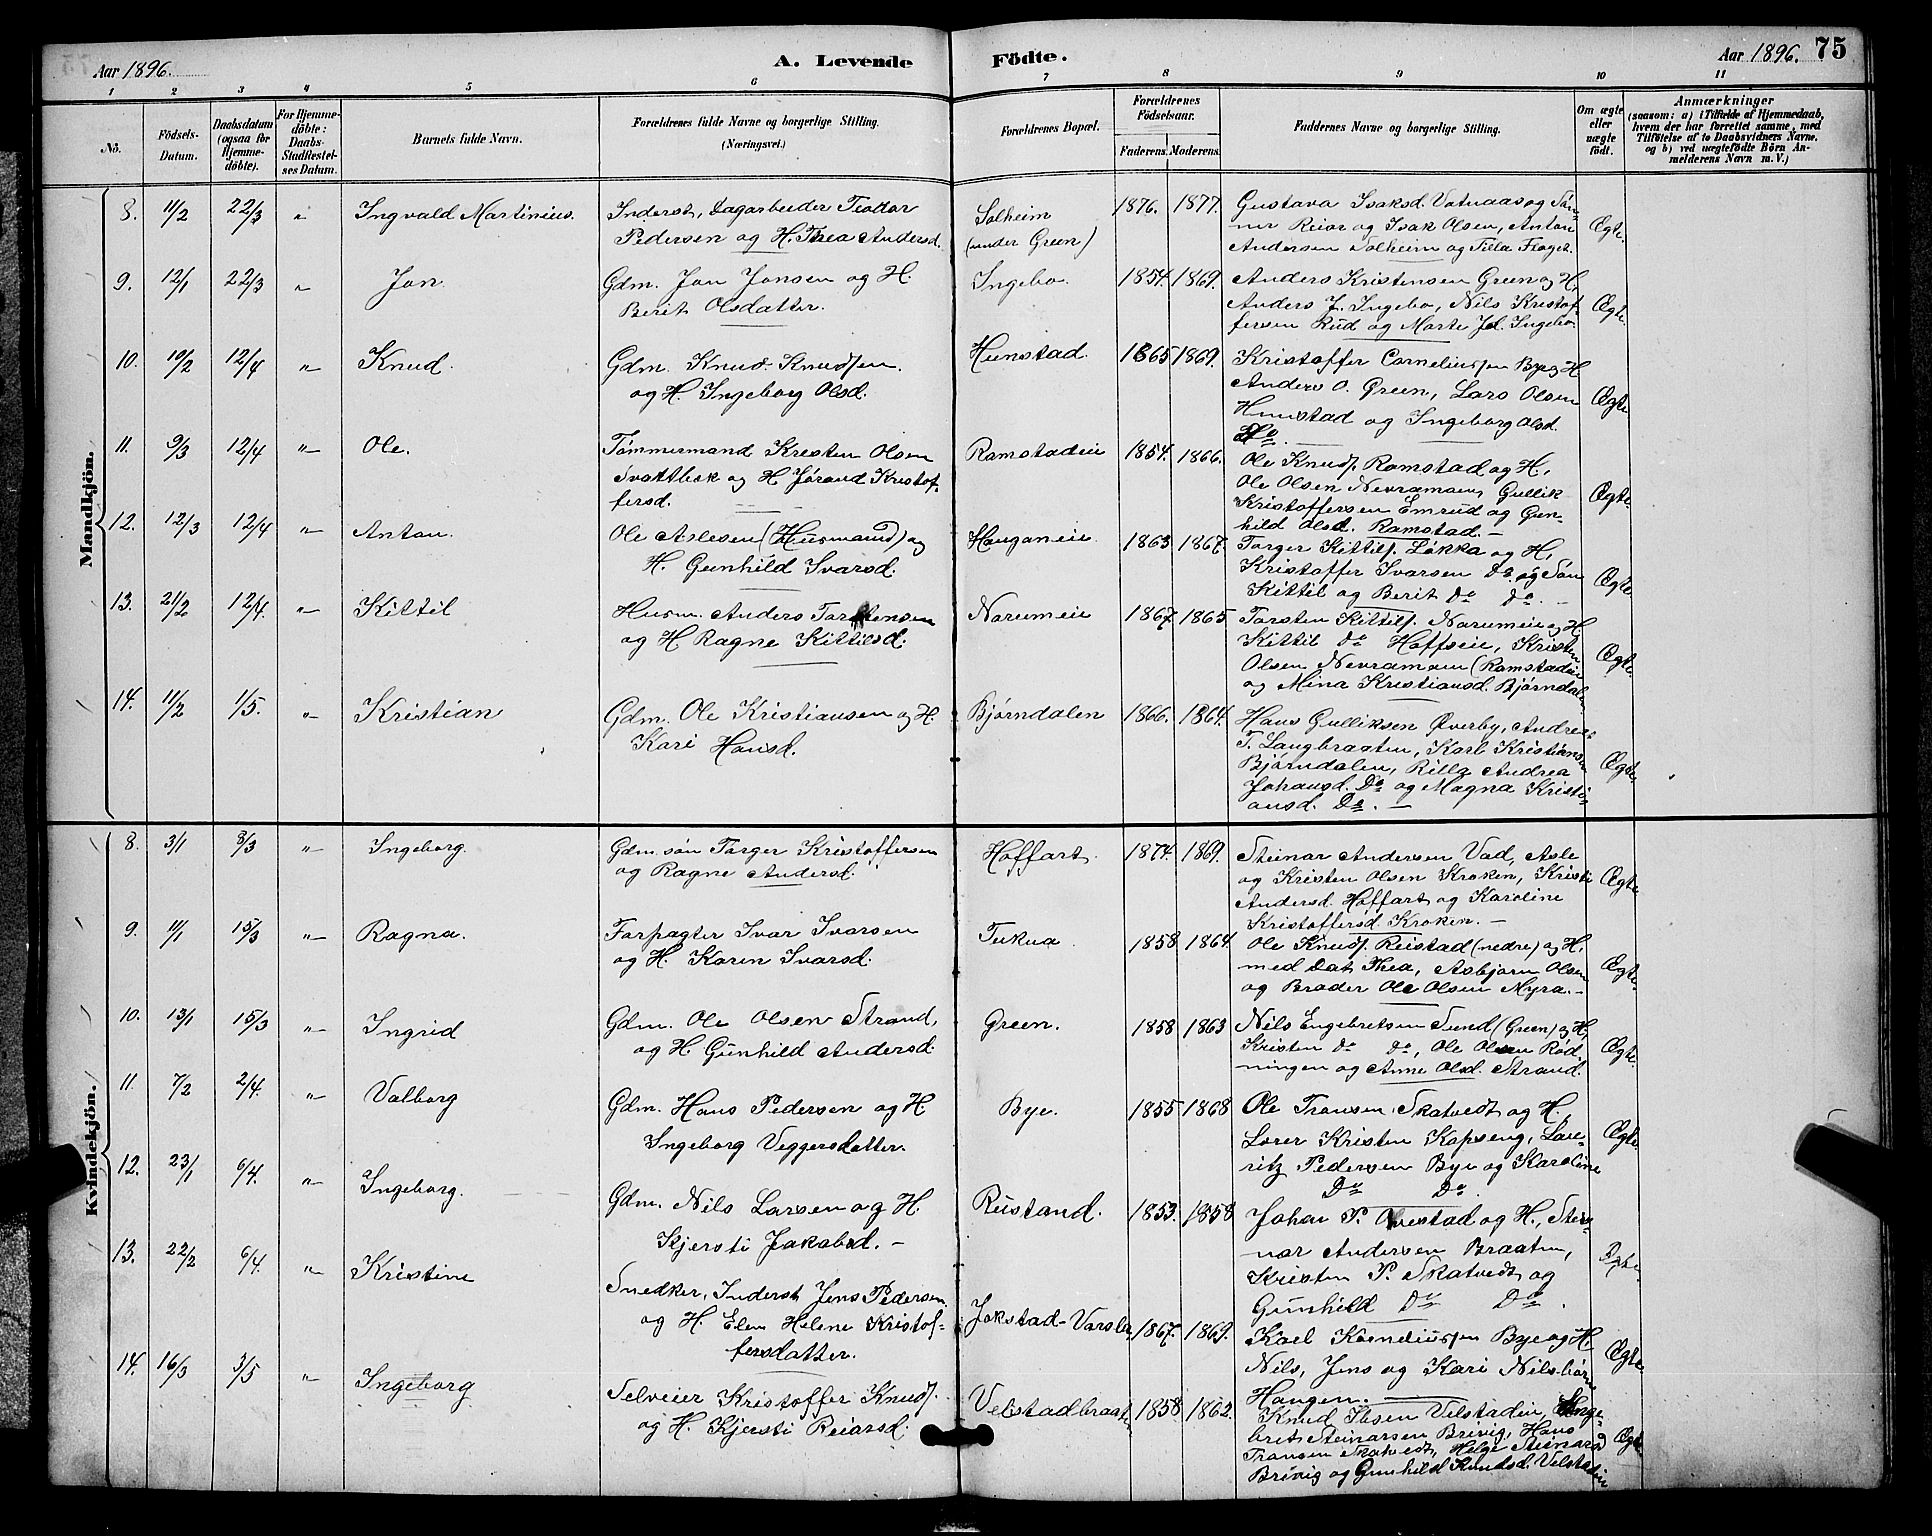 Aar 1896.
A. Levende
Födte.
Aar 1896.
75
1 2 3 4 5 6 7 8 9 10 11
No.
Födsels-
Datum.
Daabsdatum
(ogsaa for
Hjemme-
döbte).
For Hjemme-
döbte:
Daabs-
Stadfæstel-
ses Datum.
Barnets fulde Navn.
Forældrenes fulde Navne og borgerlige Stilling.
(Næringsvei.)
Forældrenes Bopæl.
Forældrenes
Födselsaar.
Faderens. Moderens.
Faddernes Navne og borgerlige Stilling.
Om ægte
eller
uægte
födt.
Anmærkninger
(saasom: a) i Tilfælde af Hjemmedaab,
hvem der har forrettet samme, med
Tilföielse af to Daabsvidners Navne.
og b) ved uægtefödte Börn An-
melderens Navn m. V.)
Mandkjön.
8. 11/2 22/3 " Ingvald Martinius.
Inderst, Dagarbeider
Pedersen og H. Thea Andersd.
Solheim
(under Green)
1876. 1877.
Gustava Isaksd. Vatnaas og Søn-
ner Reior og Isak Olsen, Anton
Andersen Solheim og Tilla Flaget.
Ægte.
9. 12/1 22/3 " Jon.
Gdm. Jon Jonsen og H.
Berit Olsdatter.
Ingebo. 1854. 1869.
Anders Kristensen Green og H,
Anders J. Ingebo, Nils Kristof-
fersen Rud og Marte Jd. Ingebo.
Ægte.
10. 10/2 12/4 " Knud.
Gdm. Knud Knudsen
og H. Ingeborg Olsd.
Hunstad. 1865 1869.
Kristoffer Corneliussen Bye og H
Anders O. Green, Lars Olsen
Hunstad og Ingeborg Olsd.
Do.
Ægte
11. 9/3 12/4 " Ole.
Tømmermand Kristen Olsen
Svattbak og H. Jørand Kristof-
fersd.
Ramstadeie 1854. 1866.
Ole Knuds. Ramstad og H,
Ole Olsen Nevramoen, Gullik
Kristoffersen Emrud og Gun-
hild Olsd. Ramstad.
Ægte.
12. 12/3 12/4 " Anton.
Ole Aslesen (Husmand) og
H. Gunhild Ivarsd.
Hauganeie 1863 1867.
Torger Kittils. Løkka og H,
Kristoffer Ivarsen Do og Søn
Kittil og Berit Do Do.
Ægte.
13. 21/2 12/4. " Kittil
Husm. Anders Torstensen
og H Ragne Kittilsd.
Narumeie 1867 1865
Torsten Kittils. Narumeie og H
Kittil Do Hoffseie, Kristen
Olsen Nevramoen (Ramstadeie
og Mina Kristiansd. Bjørndalen
Ægte.
14. 11/2 1/5. " Kristian
Gdm. Ole Kristiansen og H.
Kari Hansd.
Bjørndalen 1866. 1864.
Hans Gulliksen Øverby, Andreas
T. Langbraaten, Karl Kristiansen
Bjørndalen, Rilla Andrea
Johansd. Do og Magna Kristi-
ansd. Do.
Ægte
Kvindekjön.
8. 3/1 8/3 " Ingeborg.
Gdm. søn Torger Kristoffersen
og Ragne Andersd.
Hoffart. 1874. 1869.
Steinar Andersen Vad, Asle
og Kristen Olsen Kroken, Kristi
Andersd. Hoffart og Karoline
Kristoffersd Kroken.
Ægte
9. 11/1 15/3 " Ragna.
Forpagter Ivar Ivarsen
og H. Karen Ivarsd.
Tukua. 1858 1864.
Ole Knuds. Reistad (nedre) og H,
med Dat Thea, Asbjørn Olsen
og Broder Ole Olsen Myra.
Ægte.
10. 13/1 15/3 " Ingrid
Gdm. Ole Olsen Strand,
og H. Gunhild Andersd.
Green. 1858 1863
Nils Engebretsen Sund (Green) og H,
Kristen Do Do, Ole Olsen Rød-
ningen og Anne Olsd. Strand.
Ægte.
11. 7/2 2/4. " Valborg
Gdm. Hans Pedersen og H
Ingeborg Veggersdatter.
Bye. 1855 1868
Ole Transen Skatvedt og H,
Lærer Kristen Kopseng, Lau-
ritz Pedersen Bye og Karoline
Do Do.
Ægte.
12. 23/1 6/4. " Ingeborg.
Gdm. Nils Larsen og H.
Kjersti Jakobsd.
Rustand. 1853. 1858
Johan P. Ovestad og H., Stei-
nar Andersen Braaten,
Kristen P. Skatvedt og
Gunhild Do Do.
Ægte.
13. 22/2 6/4. " Kristine
Snedker, Inderst Jens Pedersen
og H. Elen Helene Kristof-
fersdatter.
Jokstad-Varslo 1867. 1869.
Karl Korneliussen Bye og H
Nils, Jens og Kari Nilsbørn
Haugen.
Ægte
14. 16/3 3/5 " Ingeborg
Selveier Kristoffer Knuds.
og H. Kjersti Reiarsd.
Velstadbraat. 1858. 1862.
Knud Ibsen Velstadeie, Enge-
bret Steinarsen Brivig, Hans
Transen Skatvedt, Helge Steinarsd
Brivig og Gunhild Knudsd. Velstadeie
Ægte